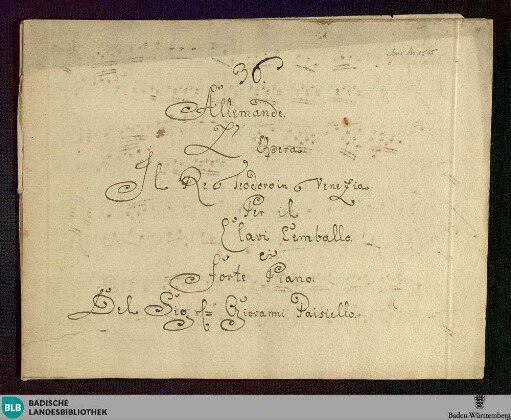 36.
Allemande.
L' Opera
Il Re Teodoro in Venezia
Per il
Clavi Cembalo.
Forte Piano.
Del Sigr= Giovanni Paisiello.
BLB BADISCHE
LANDESBIBLIOTHEK
Baden-Württemberg